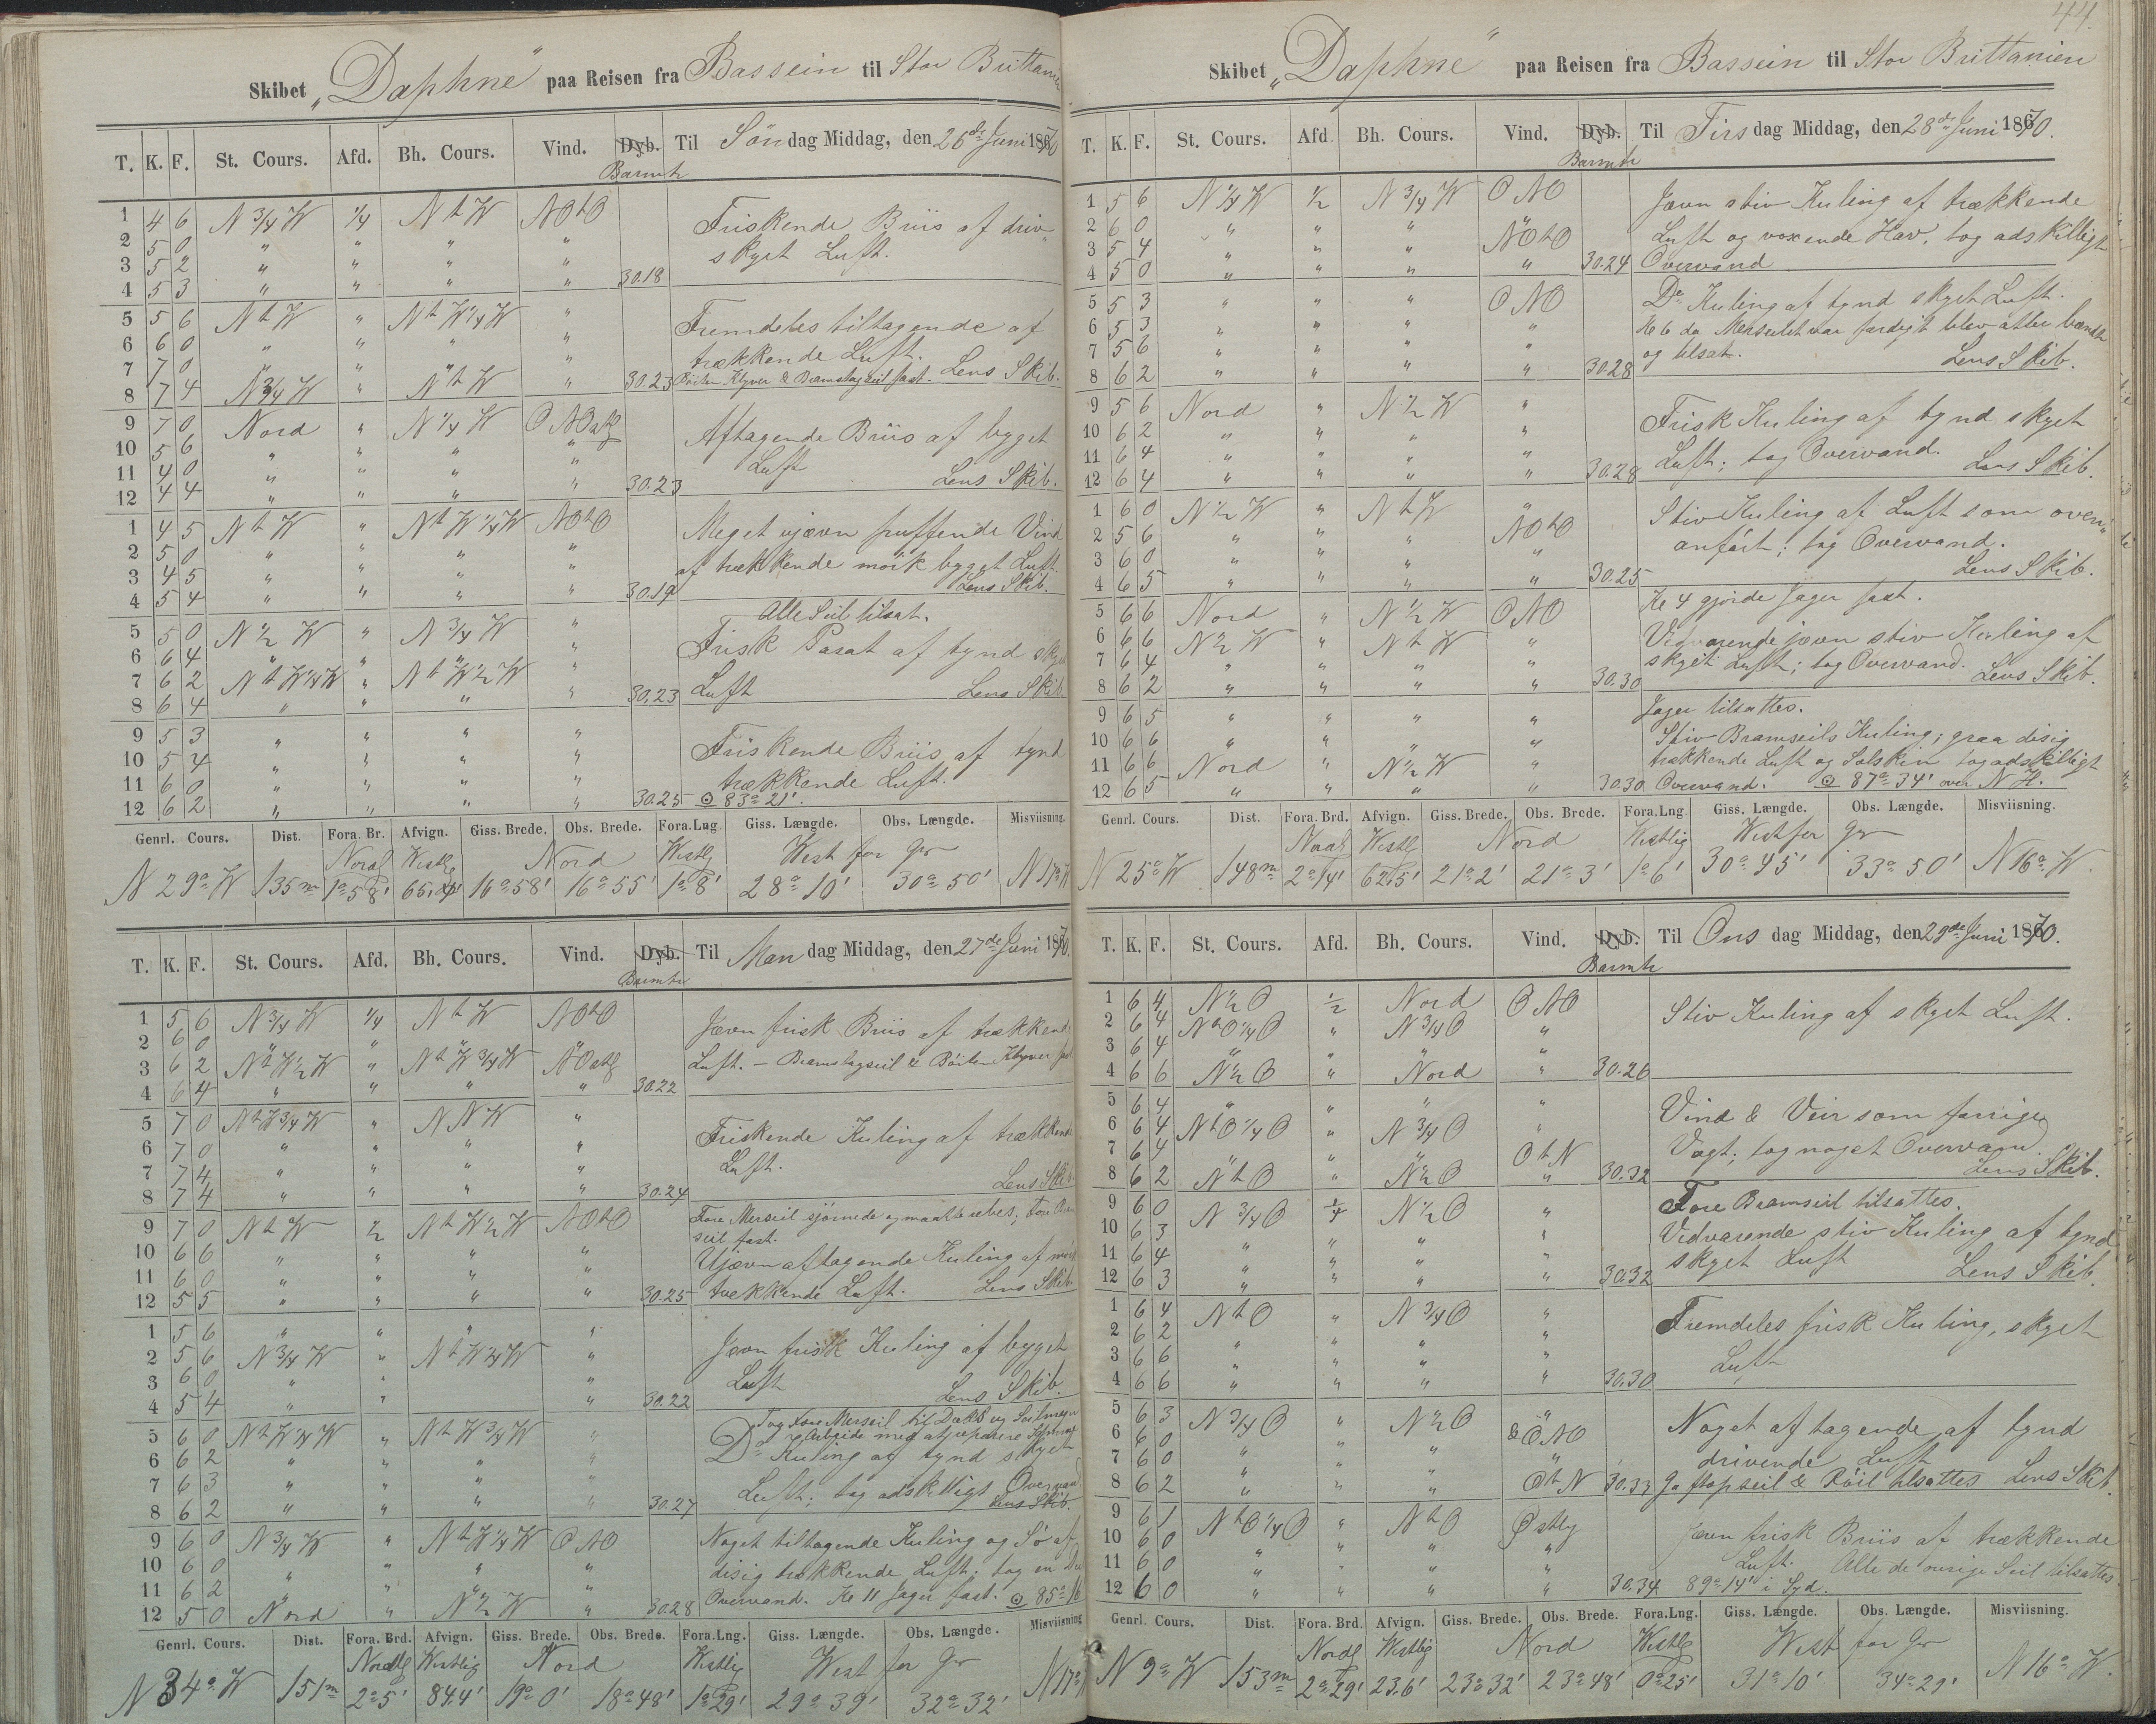 44.
Skibet „Daphne“ paa Reisen fra Bassein til Stor Brittanien
T. K. F. St. Cours. Afd. Bh. Cours. Vind. Dyb. Til Søndag Middag, den 26de Juni 1870
Barmtr
1 4 6 N 3/4 W 1/4 N t W NOtO Friskende Briis af driv„
2 5 0 „ „ „ „ skyet Luft.
3 5 2 „ „ „ „
4 5 3 „ „ „ „ 30.18
5 5 6 N t W „ N t W 1/4 W „ Fremdeles tiltagende af
6 6 0 „ „ „ „ trækkende Luft.
7 7 0 „ „ „ „ Lens Skib.
8 7 4 N 3/4 W „ N t W „ 30.23 Røilen Klyver & Bramstagseil fast.
9 7 0 Nord „ N 1/4 W ONO Aftagende Briis af byget
10 5 6 „ „ „ „ Luft
11 4 0 „ „ „ „
12 4 4 „ „ „ „ 30.23 Lens Skib.
1 4 5 N t W „ N t W 1/4 W NOtO Meget ujævn puffende Vind
2 5 0 „ „ „ „ af trækkende mørk bygget Luft.
3 4 5 „ „ „ „
4 5 4 „ „ „ „ 30.19 Lens Skib.
Alle Seil tilsat.
5 5 0 N 1/2 W „ N 3/4 W „ Frisk Pasat af tynd skyet
6 6 4 „ „ „ „
7 6 2 N t W 1/4 W „ N t W 1/2 W „ 30.23 Luft Lens Skib
8 6 4 „ „ „
9 5 3 „ „ „ „ Friskende Briis af tynd
10 5 4 „ „ „ „ trækkende Luft.
11 6 0 „ „ „ „
12 6 2 „ „ „ „ 30.25 ⊙ 83° 21'.
Genrl. Cours. Dist. Fora. Br. Afvign. Giss. Brede. Obs. Brede. Fora.Lng. Giss. Længde. Obs. Længde. Misviisning.
Nordl Westlg Nord Westlg West for Gr
N 29° W 135m 1° 58' 65,4' 16° 58' 16° 55' 1° 8' 28° 10' 30° 50' N 17° W
T. K. F. St. Cours. Afd. Bh. Cours. Vind. Dyb. Til Mandag Middag, den 27de Juni 1870.
Barmtr
1 5 6 N 3/4 W 1/4 N t W NOtO Jævn frisk Briis af trækkende
2 6 0 „ „ „ „ Luft. — Bramstagseil & Røilen Klyver fast
3 6 2 N t W 1/2 W „ N t W 3/4 W NOstlg
4 6 4 „ „ „ „ 30.22
5 7 0 N t W 3/4 W „ NNW „ Friskende Kuling af trækkende
6 7 0 „ „ „ „ Luft.
7 7 4 „ „ „ „ Lens Skib
8 7 4 „ „ „ „ 30.24
9 7 0 N t W 1/2 N t W 1/2 W NOtO Fore Merseil sjørnede og maatte rebes; Fore Bram
seil fast.
10 6 6 „ „ „ „ Ujævn aftagende Kuling af mørk
11 6 0 „ „ „ „
12 5 5 „ „ „ „ 30.25 trækkende Luft. Lens Skib
1 5 6 „ „ „ „ Jævn frisk Kuling af bygget
2 5 6 N 3/4 W „ N t W 1/4 W „ Luft
3 6 0 „ „ „
4 5 4 „ „ „ 30.22 Lens Skib.
Tog Fore Merseil til Dæks og Seilmager
i Arbeide med at reparere
5 6 0 N t W 1/4 W „ N t W 3/4 W „ Do Kuling af tynd skyet
6 6 2 „ „ „ „
7 6 3 „ „ „ „ Luft; tog adskilligt Overvand
8 6 2 „ „ „ „ 30.27 Lens Skib.
9 6 0 N 3/4 W „ N t W 1/4 W ONO Noget tiltagende Kuling og Sø af
10 6 0 „ „ „ „ disig trækkende Luft; tog en Del
11 6 2 „ „ „ „
12 5 0 Nord „ N 1/2 W „ 30.28 Overvand. Kl 11 Jager fast. ⊙ 85° 16
Genrl. Cours. Dist. Fora. Brd. Afvign. Giss. Brede. Obs. Brede. Fora.Lng. Giss. Længde. Obs. Længde. Misviisning
Nordlg Westlig Nord Westlig West for Gr
N 34° W 151m 2° 5' 84,4' 19° 0' 18° 48' 1° 29' 29° 39' 32° 32' N 17° W
Skibet „Daphne“ paa Reisen fra Bassein til Stor Brittanien
T. K. F. St. Cours. Afd. Bh. Cours. Vind. Dyb. Til Tirsdag Middag, den 28de Juni 1870.
Barmtr
1 5 6 N 1/4 W 1/2 N 3/4 W ONO Jævn stiv Kuling af trækkende
2 6 0 „ „ „ „ Luft og voxende Hav, tog adskilligt
3 5 4 „ „ „ NOtO
4 5 0 „ „ „ „ 30.24 Overvand
5 5 3 „ „ „ ONO Do Kuling af tynd skyet Luft.
6 5 3 „ „ „ „ Kl 6 da Merseilet var færdigt blev atter bændt
7 5 6 „ „ „ „ og tilsat.
8 6 2 „ „ „ „ 30.28 Lens Skib.
9 5 6 Nord „ N 1/2 W „ Frisk Kuling af tynd skyet
10 6 2 „ „ „ „
11 6 4 „ „ „ „ Luft; tog Overvand.
12 6 4 „ „ „ „ 30.28 Lens Skib.
1 6 0 N 1/2 W „ N t W „ Stiv Kuling af Luft som oven„
2 5 6 „ „ „ NOtO anført; tog Overvand.
3 6 0 „ „ „ „
4 6 5 „ „ „ „ 30.25 Lens Skib.
Kl 4 gjorde Jager fast.
5 6 6 Nord „ N 1/2 W ONO Vidvarende jævn stiv Kuling af
6 6 6 N 1/2 W „ N t W „ skyet Luft; tog Overvand.
7 6 4 „ „ „ „ Lens Skib.
8 6 2 „ „ „ „ 30.30
Jager tilsattes.
9 6 5 „ „ „ „ Stiv Bramseils Kuling; graa disig
10 6 6 „ „ „ „ trækkende Luft og Solskin tog adskilligt
11 6 6 Nord „ N 1/2 W „
12 6 5 „ „ „ „ 30.30 Overvand. ⊙ 87° 34' over N H.
Genrl. Cours. Dist. Fora. Brd. Afvign. Giss. Brede. Obs. Brede. Fora.Lng Giss. Længde. Obs. Længde. Misviisning.
Nordl Westl Nord Westlig West for Gr
N 25° W 148m 2° 14' 62,5' 21° 2' 21° 3' 1° 6' 30° 45' 33° 50' N 16° W.
T. K. F. St. Cours. Afd. Bh. Cours. Vind. Dyb. Til Onsdag Middag, den 29de Juni 1870.
Barmtr
1 6 4 N 1/2 O 1/2 Nord ONO Stiv Kuling af skyet Luft.
2 6 4 N t O 1/4 O „ N 3/4 O „
3 6 4 „ „ „ „
4 6 6 N 1/2 O „ Nord „ 30.26
5 6 4 „ „ „ „ Vind & Veir som forrige
6 6 4 N t O 1/4 O „ N 3/4 O „ Vagt; tog noget Overvand.
7 6 4 „ „ „ OtN
8 6 2 N t O „ N 1/2 O „ 30.32 Lens Skib.
9 6 0 N 3/4 O 1/4 N 1/2 O „ Fore Bramseil tilsattes.
10 6 3 „ „ „ „ Vidvarende stiv Kuling af tynd
11 6 4 „ „ „ „ skyet Luft
12 6 3 „ „ „ „ 30.32 Lens Skib.
1 6 4 N t O „ N 3/4 O „ Fremdeles frisk Kuling, skyet
2 6 2 „ „ „ „ Luft
3 6 6 „ „ „ „
4 6 6 „ „ „ „ 30.30
5 6 3 N 3/4 O „ N 1/2 O „ Noget aftagende af tynd
6 6 0 „ „ „ & ONO drivende Luft
7 6 0 „ „ „ „
8 6 2 „ „ „ OtN 30.33 Gaftopseil & Røil tilsattes Lens Skib.
9 6 1 N t O 1/4 O „ N t O Østlg Jævn frisk Briis af trækkende
10 6 0 „ „ „ „ Luft. Alle de øvrige Seil tilsattes.
11 6 0 „ „ „ „
12 6 0 „ „ „ „ 30.34 89° 14' i Syd.
Genrl. Cours. Dist. Fora. Brd. Afvign. Giss. Brede. Obs. Brede. Fora.Lng. Giss. Længde. Obs. Længde. Misviisning.
Nordl Westlig Nord Westlg West for Gr
N 9° W 153m 2° 29' 23,6' 23° 32' 23° 48' 0° 25' 31° 10' 34° 29' N 16° W.